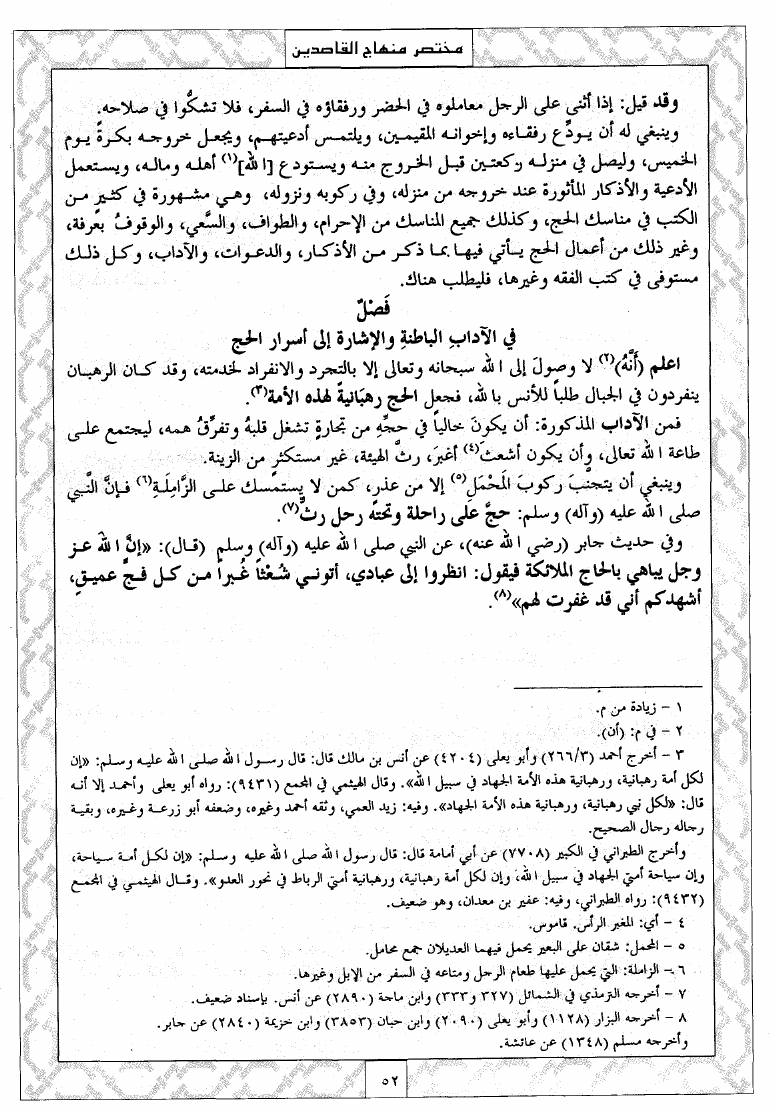 مختصر منهاج القاصدين
وقد قيل: إذا أثنى على الرجل معاملوه في الحضر ورفقاؤه في السفر، فلا تشكُّوا في صلاحه.
وينبغي له أن يودِّع رفقاءه وإخوانه المقيمين، ويلتمس أدعيتهم، ويجعل خروجه بكرةً يوم
الخميس، وليصل في منزله ركعتين قبل الخروج منه ويستودع [الله](١) أهله وماله، ويستعمل
الأدعية والأذكار المأثورة عند خروجه من منزله، وفي ركوبه ونزوله، وهي مشهورة في كثير من
الكتب في مناسك الحج، وكذلك جميع المناسك من الإحرام، والطواف، والسَّعي، والوقوفُ بعرفة،
وغير ذلك من أعمال الحج يأتي فيها بما ذكر من الأذكار، والدعوات، والآداب، وكل ذلك
مستوفى في كتب الفقه وغيرها، فليطلب هناك.
فَصْلٌ
في الآدابِ الباطنةِ والإشارة إلى أسرار الحج
اعلم (أَنَّهُ)(٢) لا وصولَ إلى الله سبحانه وتعالى إلا بالتجرد والانفراد لخدمته، وقد كان الرهبان
ينفردون في الجبال طلباً للأنس بالله، فجعل الحج رهبَانيةً لهذه الأمة(٣).
فمن الآداب المذكورة: أن يكونَ خالياً في حجِّه من تجارةٍ تشغل قلبهُ وتفرِّقُ همه، ليجتمع على
طاعة الله تعالى، وأن يكون أشعثَ(٤) أغبرَ، رثَّ الهيئة، غير مستكثرٍ من الزينة.
وينبغي أن يتجنَّب ركوبَ المَحْمَلِ(٥) إلا من عذرٍ، كمن لا يستمسك على الزَّامِلَةِ(٦) فإنَّ النَّبي
صلى الله عليه (وآله) وسلم: حجَّ على راحلة وتحتَه رحل رثٌّ(٧).
وفي حديث جابر (رضي الله عنه)، عن النبي صلى الله عليه (وآله) وسلم (قال): «إنَّ اللهَ عز
وجل يباهي بالحاج الملائكة فيقول: انظروا إلى عبادي، أتوني شُعْثاً غُبراً من كل فجٍّ عميقٍ،
أشهدكم أني قد غفرت لهم»(٨).
١ – زيادة من م.
٢ – في م: (أن).
٣ – أخرج أحمد (٢٦٦/٣) وأبو يعلى (٤٢٠٤) عن أنس بن مالك قال: قال رسول الله صلى الله عليه وسلم: «إن
لكل أمة رهبانية، ورهبانية هذه الأمة الجهاد في سبيل الله». وقال الهيثمي في المجمع (٩٤٣١): رواه أبو يعلى وأحمد إلا أنه
قال: «لكل نبي رهبانية، ورهبانية هذه الأمة الجهاد». وفيه: زيد العمي، وثقه أحمد وغيره، وضعفه أبو زرعة وغيره، وبقية
رجاله رجال الصحيح.
وأخرج الطبراني في الكبير (٧٧٠٨) عن أبي أمامة قال: قال رسول الله صلى الله عليه وسلم: «إن لكل أمة سياحة،
وإن سياحة أمتي الجهاد في سبيل الله، وإن لكل أمة رهبانية، ورهبانية أمتي الرباط في نحور العدو». وقال الهيثمي في المجمع
(٩٤٣٢): رواه الطبراني، وفيه: عفير بن معدان، وهو ضعيف.
٤ – أي: المغبر الرأس. قاموس.
٥ – المحمل: شقان على البعير يحمل فيهما العديلان جمع محامل.
٦ – الزاملة: التي يحمل عليها طعام الرجل ومتاعه في السفر من الإبل وغيرها.
٧ – أخرجه الترمذي في الشمائل (٣٢٧ و٣٣٣) وابن ماجة (٢٨٩٠) عن أنس. بإسناد ضعيف.
٨ – أخرجه البزار (١١٢٨) وأبو يعلى (٢٠٩٠) وابن حبان (٣٨٥٣) وابن خزيمة (٢٨٤٠) عن جابر.
وأخرجه مسلم (١٣٤٨) عن عائشة.
٥٢